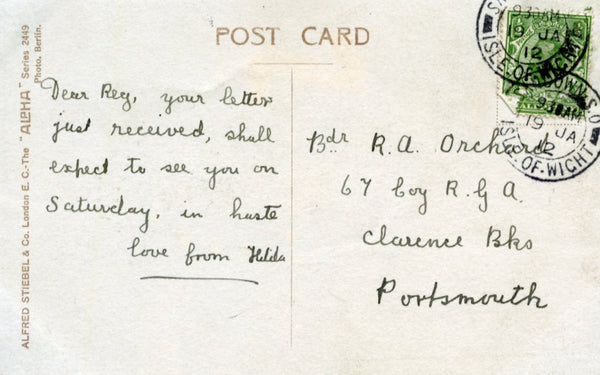 POST CARD
ALFRED STIEBEL & Co. London E. C.-The "ALPHA" Series 2449
Photo. Berlin.
Dear Reg, your letter
just received, shall
expect to see you on
Saturday, in haste
love from Hilda
Bdr R. A. Orchard
67 Coy R. G A.
Clarence Bks
Portsmouth
930AM
19 JA
12
ISLE-OF-WIGHT
930AM
19 JA
12
ISLE-OF-WIGHT